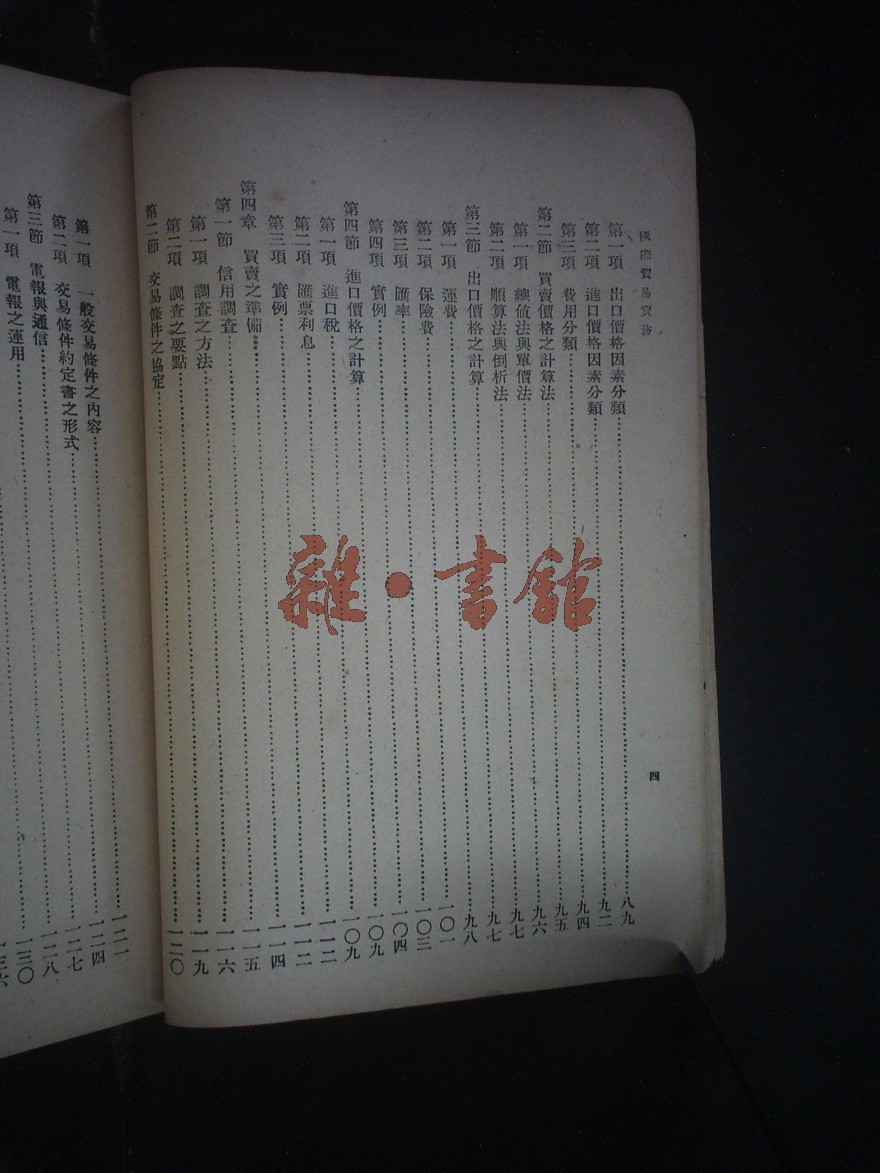 國際貿易實務
四
第一項　出口價格因素分類……八九
第二項　進口價格因素分類……九二
第三項　費用分類……九四
第二節　買賣價格之計算法……九五
第一項　總值法與單價法……九六
第二項　順算法與倒析法……九七
第三節　出口價格之計算……九七
第一項　運費……九八
第二項　保險費……一〇一
第三項　匯率……一〇三
第四項　實例……一〇四
第四節　進口價格之計算……一〇九
第一項　進口稅……一〇九
第二項　匯票利息……一一二
第三項　實例……一一二
第四章　買賣之準備……一一四
第一節　信用調查……一一五
第一項　調查之方法……一一六
第二項　調查之要點……一一九
第二節　交易條件之協定……一二〇
第一項　一般交易條件之內容……一二一
第二項　交易條件約定書之形式……一二四
第三節　電報與通信……一二七
第一項　電報之運用……一二八
一三〇
雜·書館